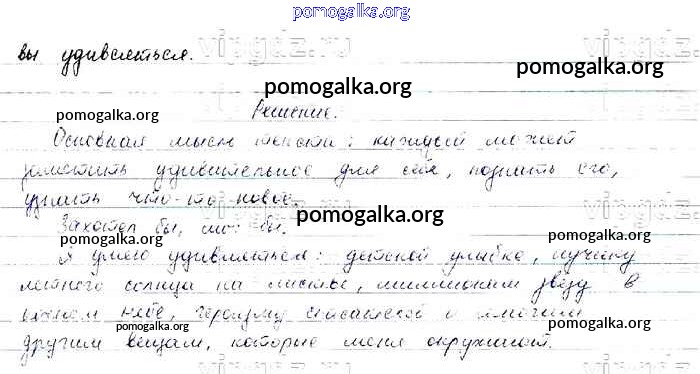 pomogalka.org
вы удивляться.
pomogalka.org
pomogalka.org
pomogalka.org
Решение.
Основная мысль текста: каждый может
заметить удивительное для себя, познать его,
узнать что-то новое.
pomogalka.org
Захотел бы, смог бы.
pomogalka.org
pomogalka.org
Я умею удивляться: детской улыбке, лучику
летнего солнца на листве, миллионам звёзд в
небе, героизму спасателей и многим
pomogalka.org
другим вещам, которые меня окружают.